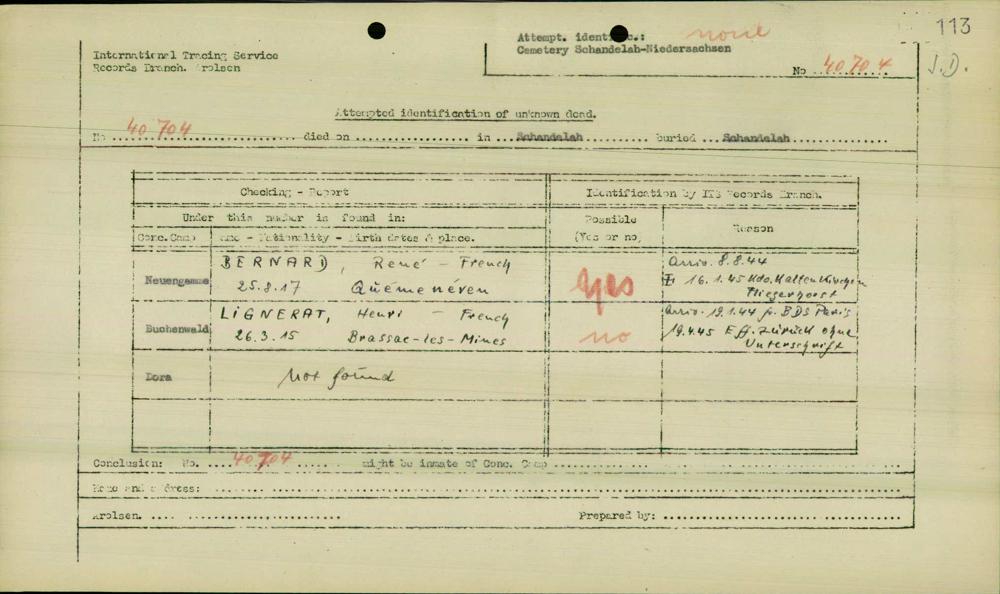 113
International Tracing Service
Records Branch. Arolsen
Attempt. identific.: none
Cemetery Schandelah-Niedersachsen
No 40704
J.D.
Attempted identification of unknown dead.
No 40 704 died on in Schandelah buried Schandelah
Checking - Report Identification by ITS Records Branch.
Under this number is found in: Possible (Yes or no) Reason
Conc.Camp Name - Nationality - Birth dates & place.
Neuengamme BERNARD, René - French yes Arriv. 8.8.44
25.8.17 Quemeneven 16.1.45 Kdo. Kaltenkirchen
Fliegerhorst
Buchenwald LIGNERAT, Henri - French no Arriv. 19.1.44 fr. BDS Paris
26.3.15 Brassac-les-Mines 19.4.45 Eff. zurück ohne
Unterschrift
Dora Not found
Conclusion: No. 40704 might be inmate of Conc. Camp
Name and address:
Arolsen. Prepared by: